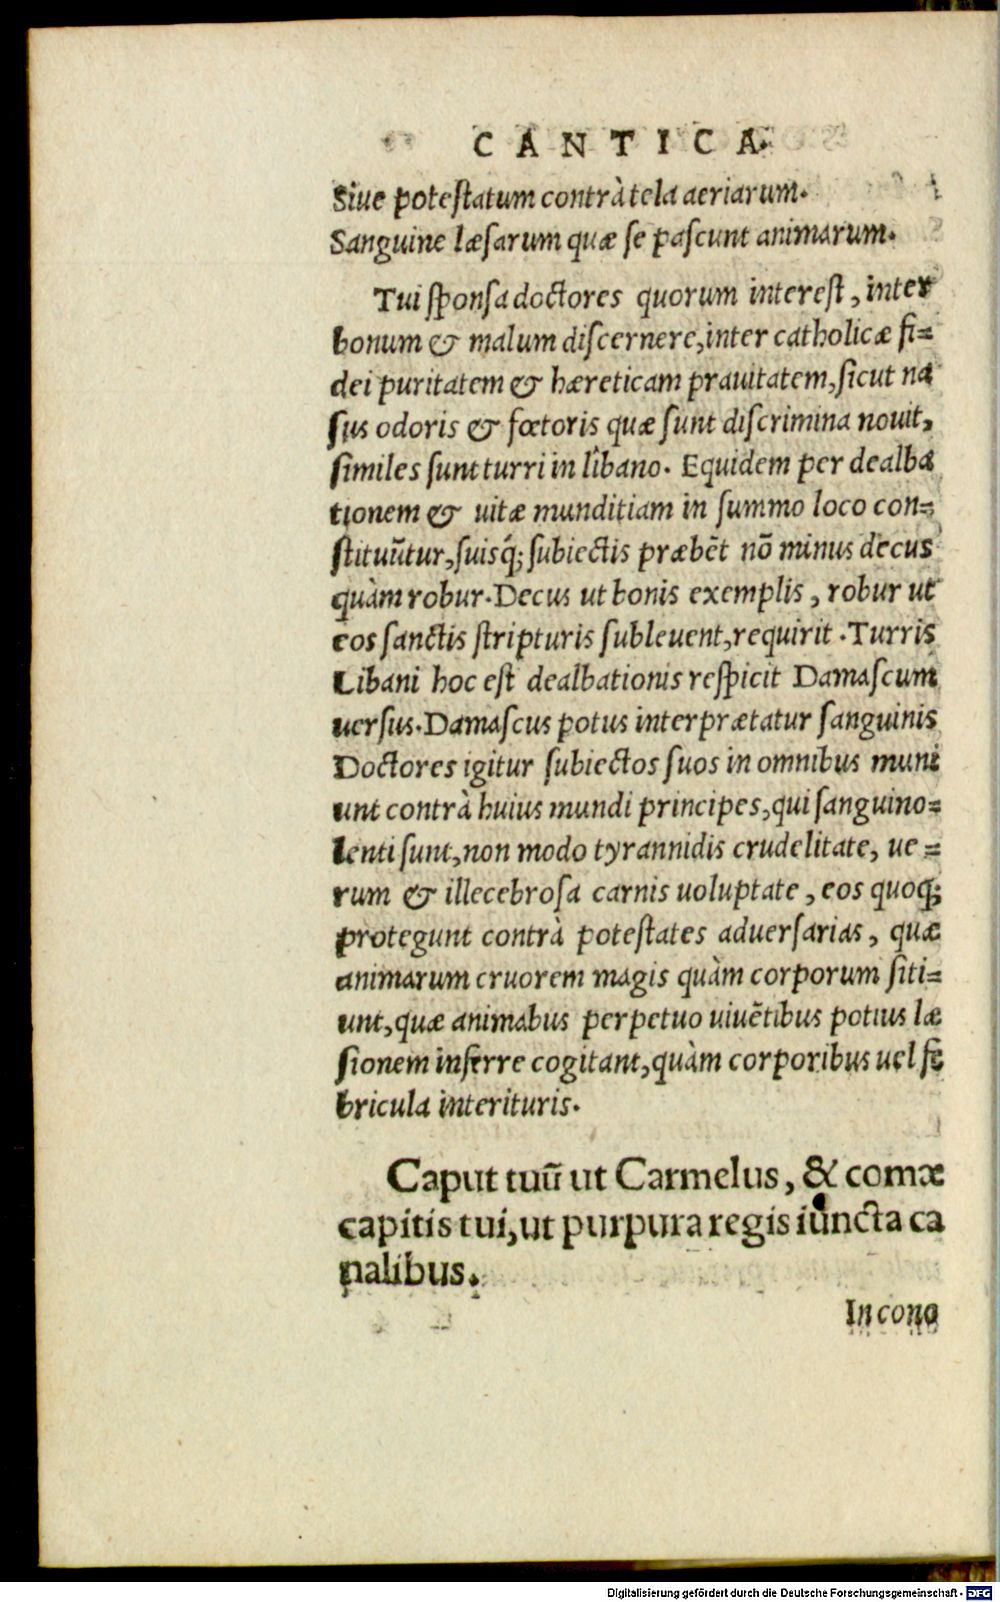 CANTICA.
Siue potestatum contrà tela aeriarum.
Sanguine læsarum quæ se pascunt animarum.
Tui sponsa doctores quorum interest, inter
bonum & malum discernere, inter catholicæ fi=
dei puritatem & hæreticam prauitatem, sicut na
sus odoris & fœtoris quæ sunt discrimina nouit,
similes sunt turri in libano. Equidem per dealba
tionem & uitæ munditiam in summo loco con=
stituũtur, suisq́; subiectis præbẽt nõ minus decus
quàm robur. Decus ut bonis exemplis, robur ut
eos sanctis scripturis subleuent, requirit. Turris
Libani hoc est dealbationis respicit Damascum
uersus. Damascus potus interprætatur sanguinis
Doctores igitur subiectos suos in omnibus muni
unt contrà huius mundi principes, qui sanguino=
lenti sunt, non modo tyrannidis crudelitate, ue=
rum & illecebrosa carnis uoluptate, eos quoq́;
protegunt contrà potestates aduersarias, quæ
animarum cruorem magis quàm corporum siti=
unt, quæ animabus perpetuo uiuẽtibus potius læ
sionem inferre cogitant, quàm corporibus uel fe
bricula interituris.
Caput tuũ ut Carmelus, & comæ
capitis tui, ut purpura regis iuncta ca
nalibus.
In cono
Digitalisierung gefördert durch die Deutsche Forschungsgemeinschaft - DFG